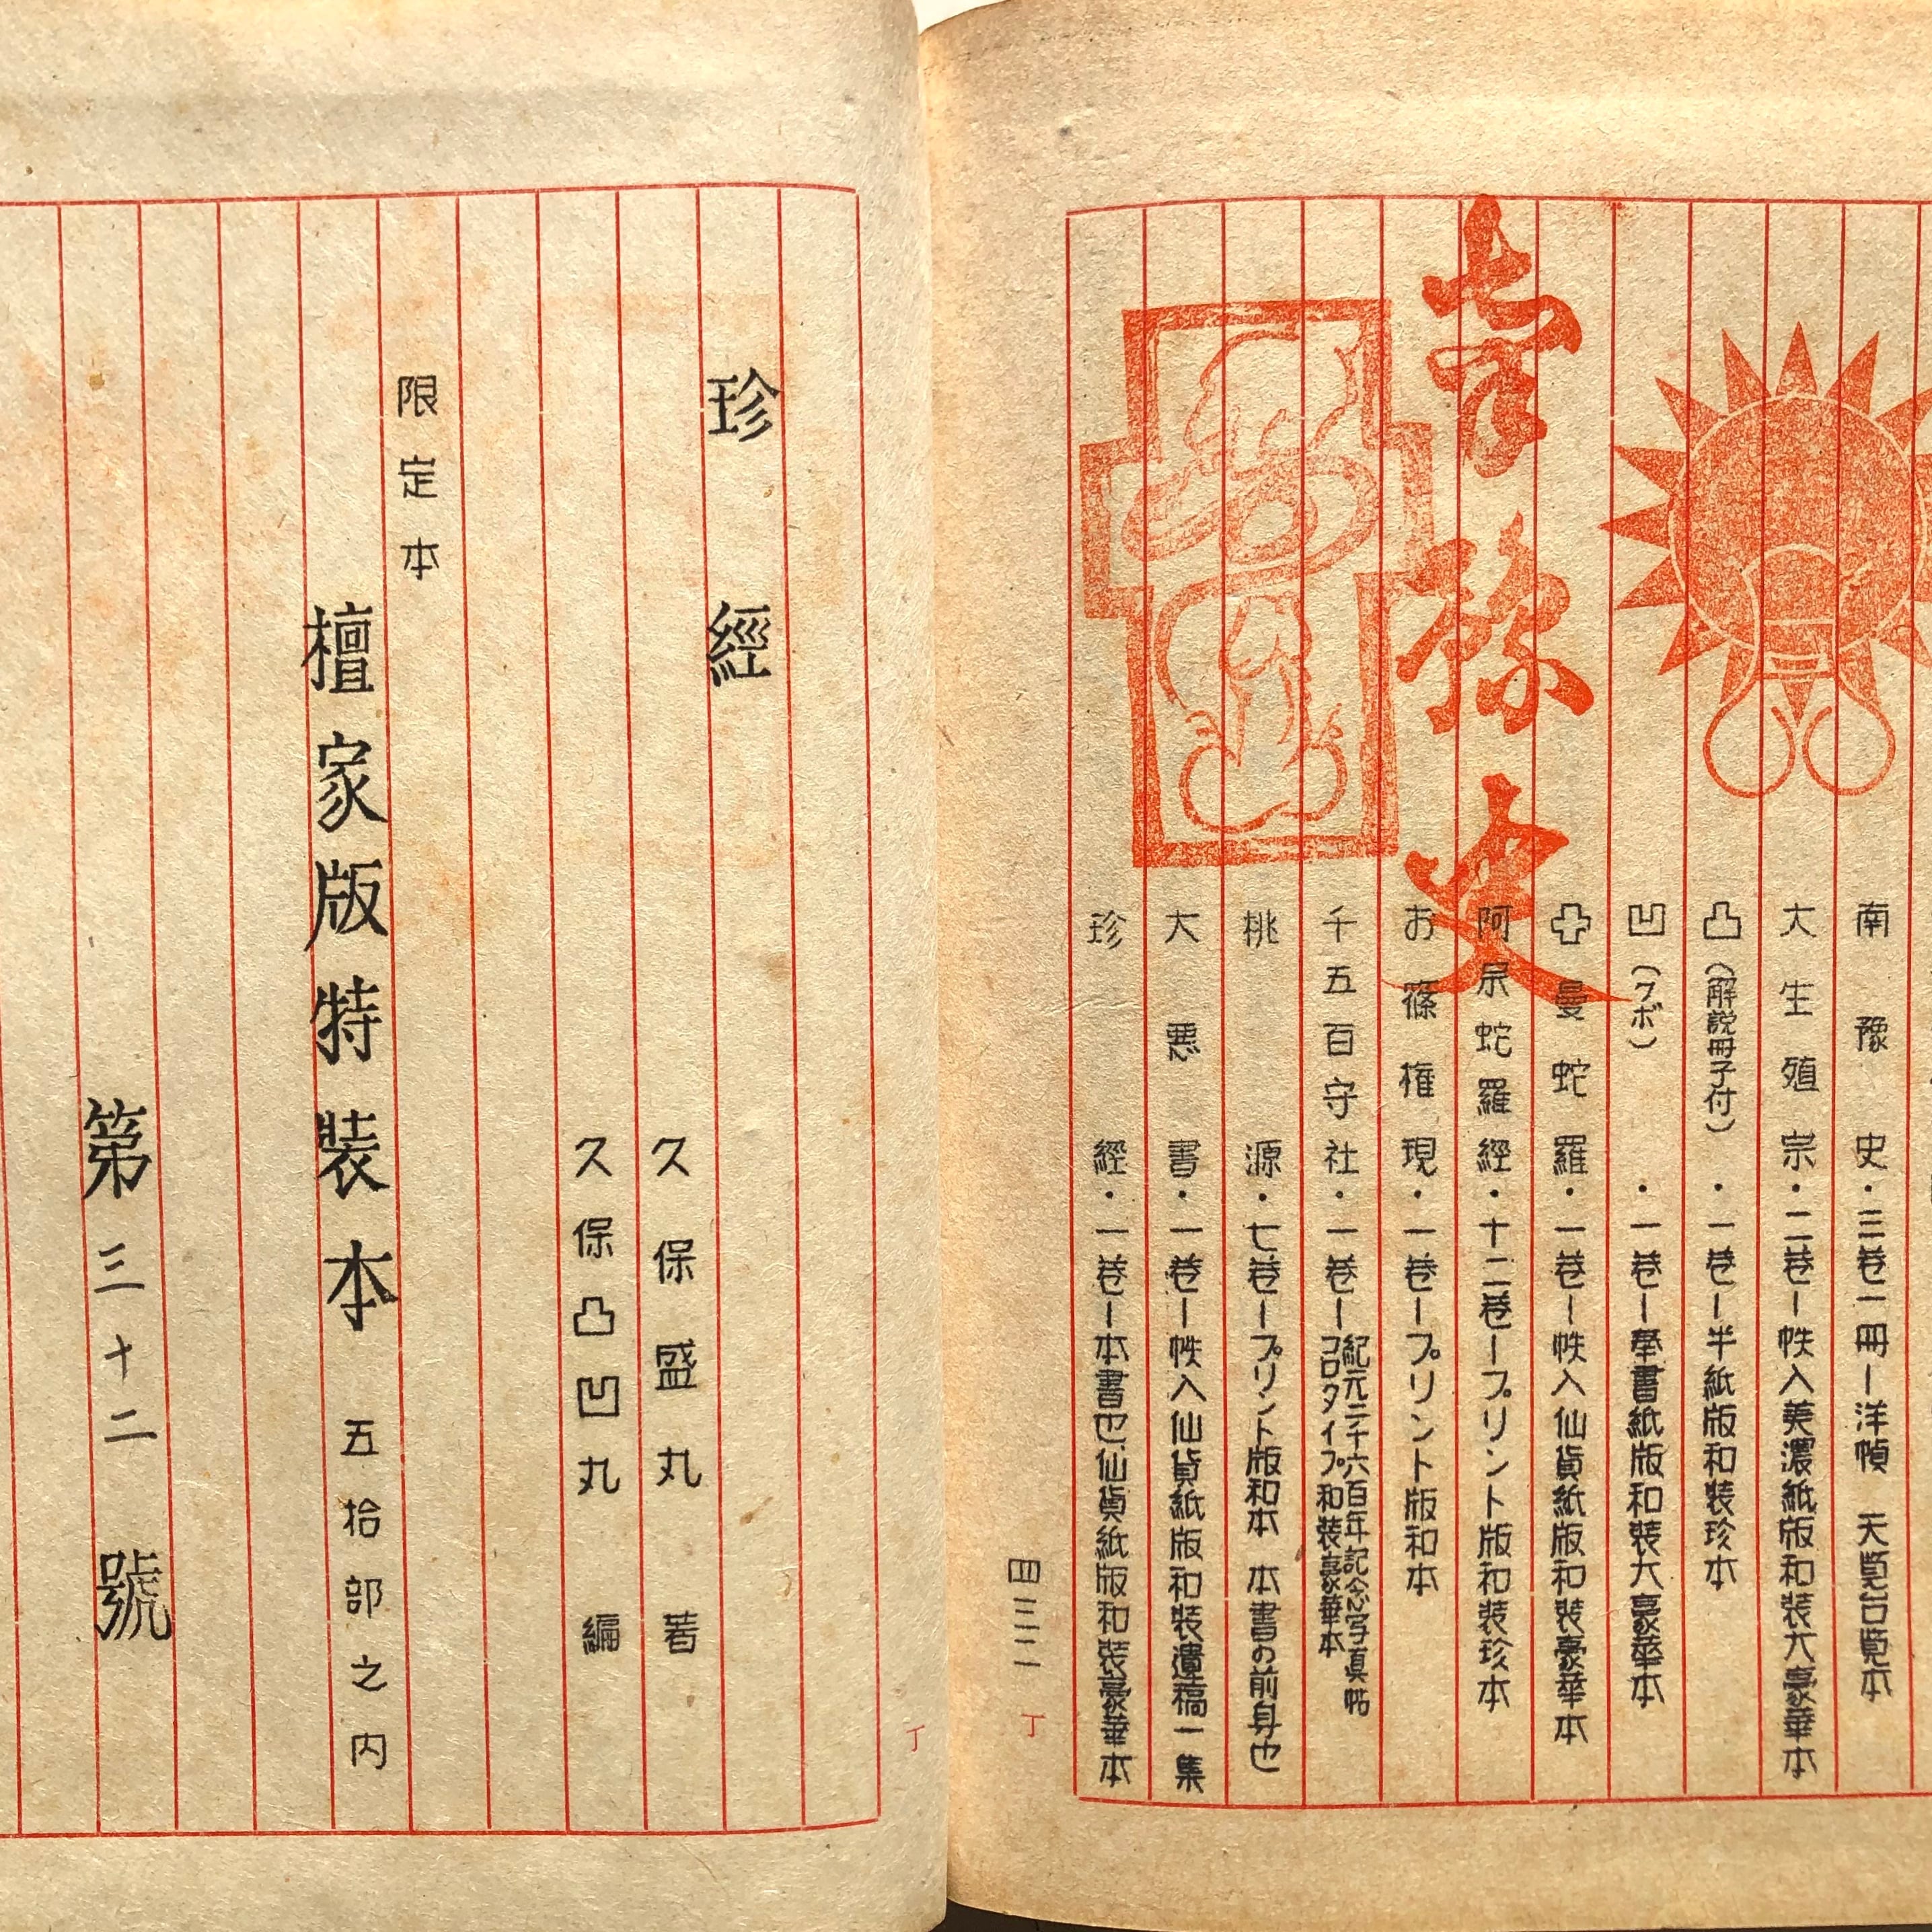 南豫史
南豫史・三巻一冊ー洋幀 天覧台覧本
大生殖宗・二巻ー帙入美濃紙版和装大豪華本
凸（解説冊子付）・一巻ー半紙版和装珍本
凹（クボ）・一巻ー奉書紙版和装大豪華本
曼蛇羅・一巻ー帙入仙貨紙版和装豪華本
阿呆蛇羅經・十二巻ープリント版和装珍本
お篠権現・一巻ープリント版和本
千五百守社・一巻ー紀元二千六百年記念写真帖
コロタイプ和装豪華本
桃源・七巻ープリント版和本 本書の前身也
大悪書・一巻ー帙入仙貨紙版和装遺稿一集
珍經・一巻ー本書也、仙貨紙版和装豪華本
四三二
丁
珍經
久保盛丸 著
久保凸凹丸 編
限定本
檀家版特装本 五拾部之内
第三十二號
丁